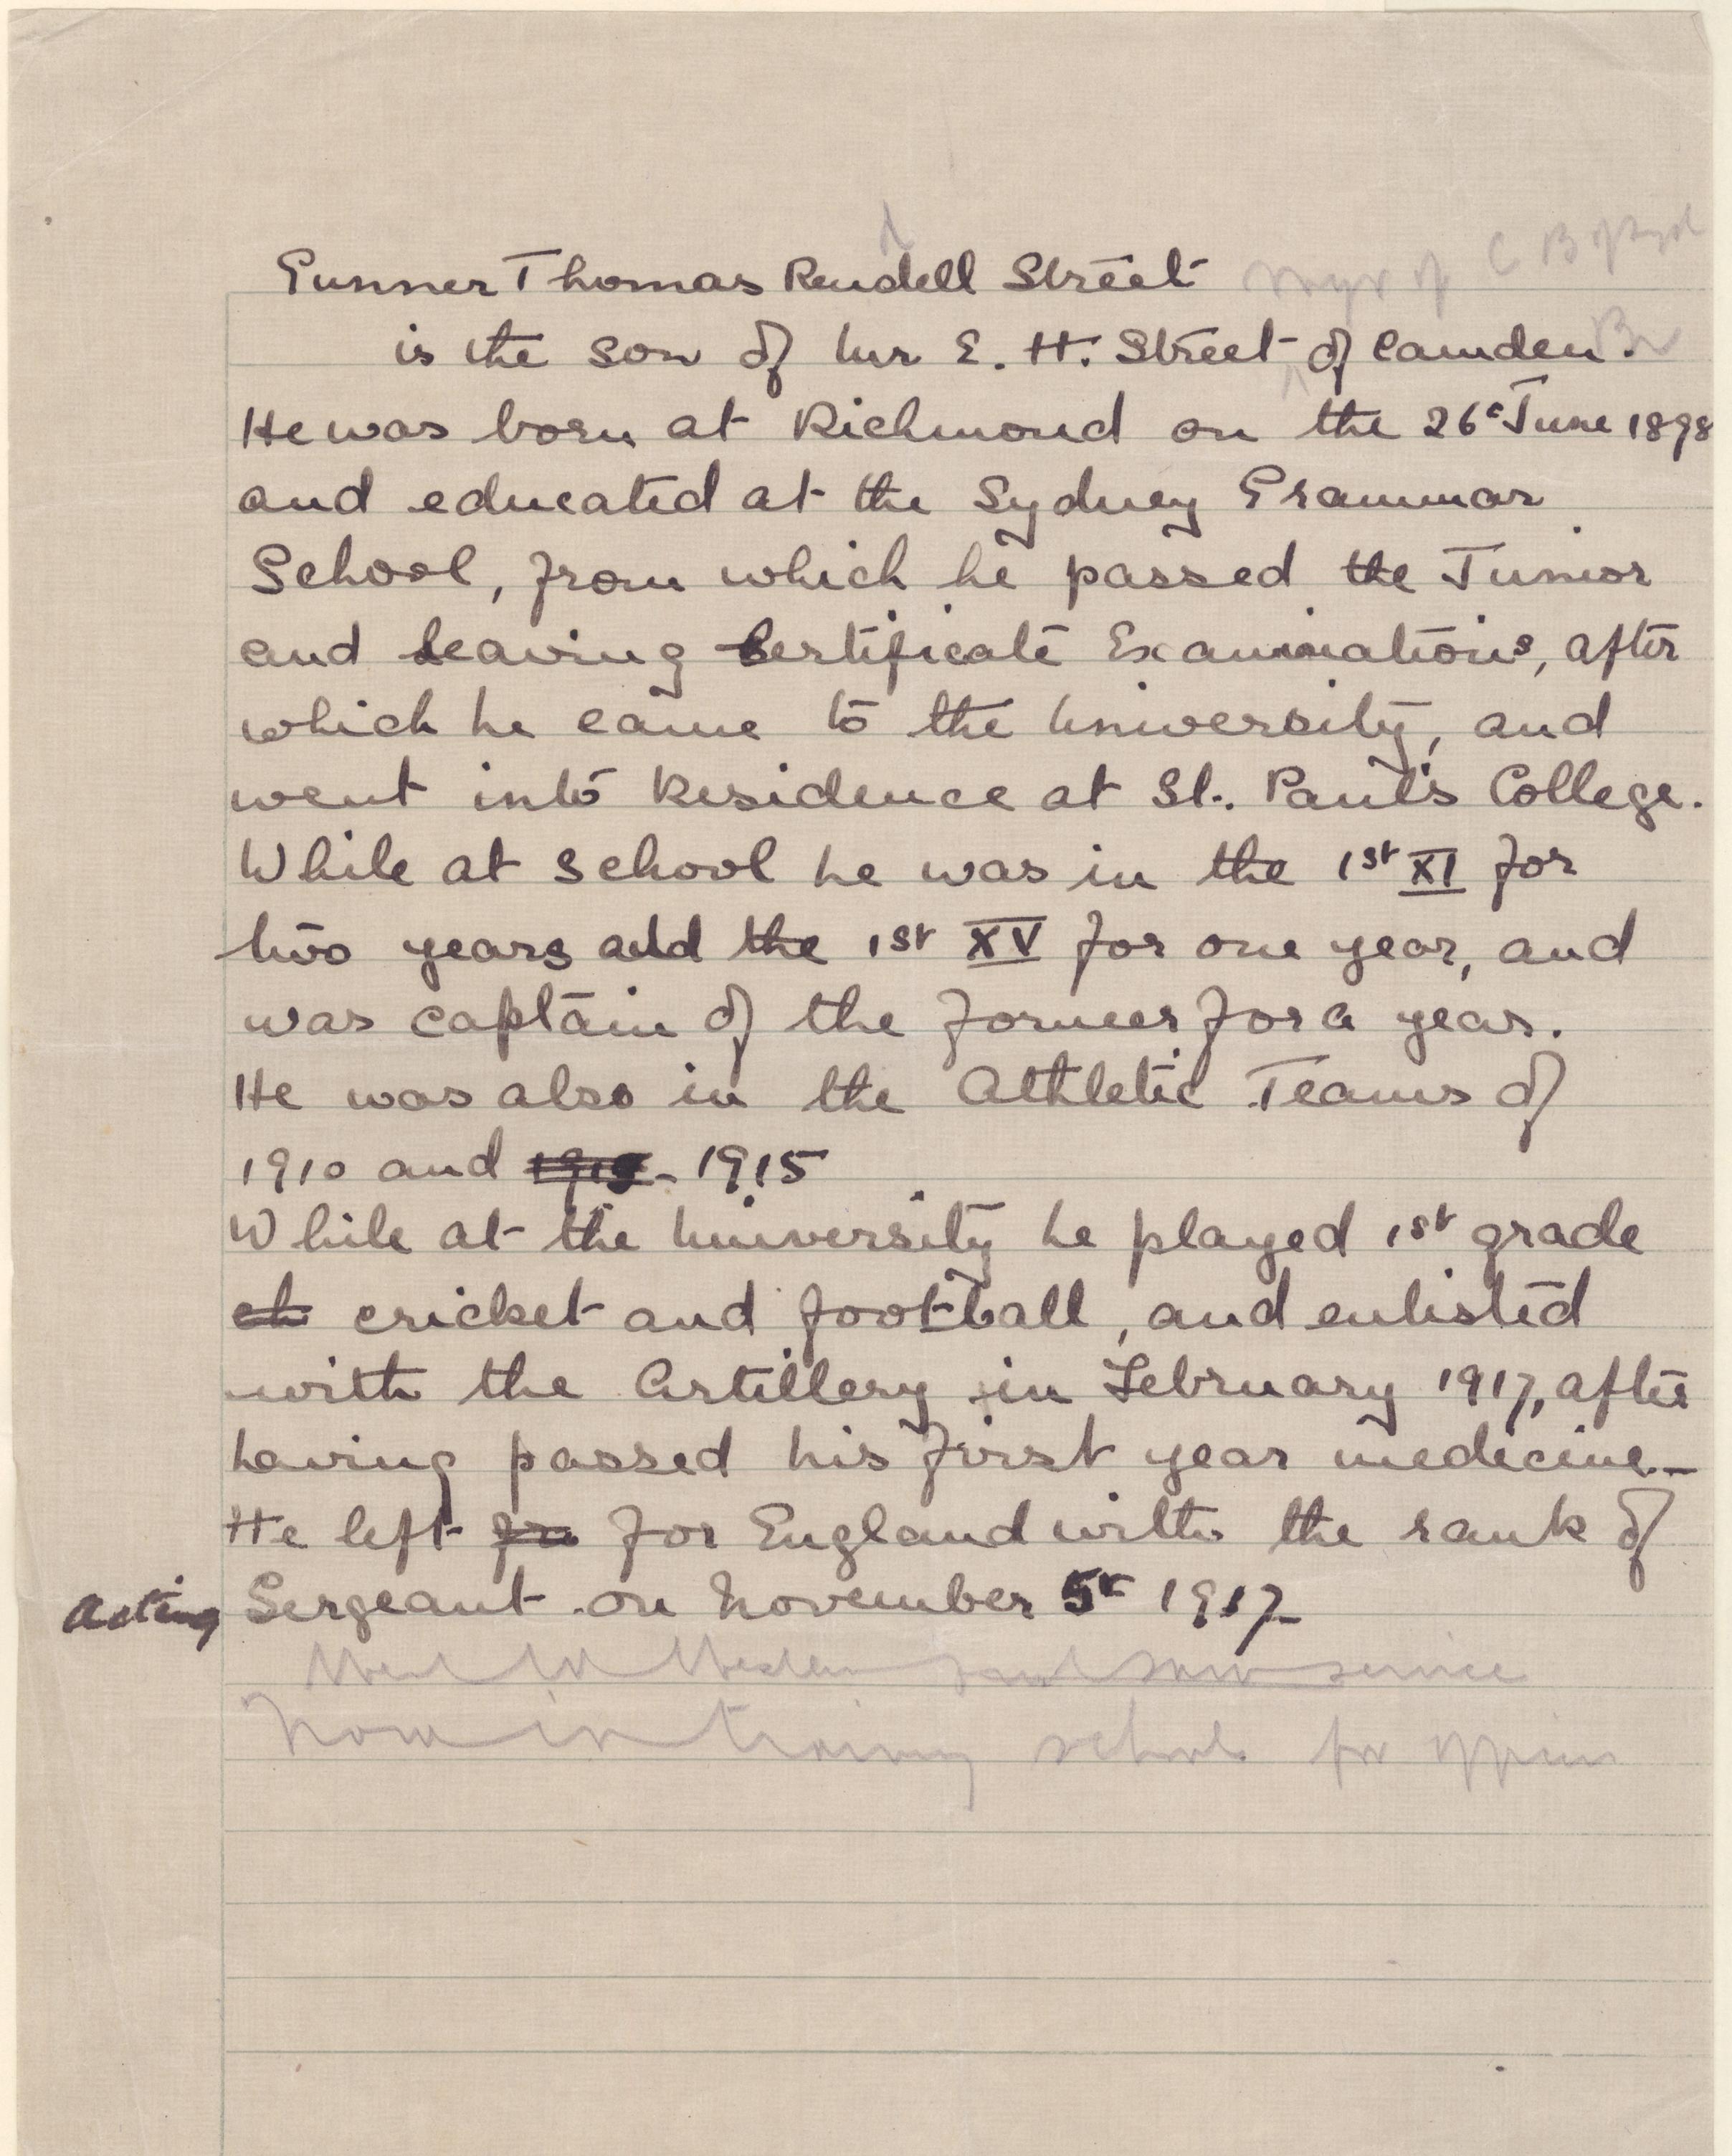 Gunner Thomas Rendell Street
d
mgr of C B of Syd
is the son of Mr E. H. Street of Camden.
Br
He was born at Richmond on the 26th June 1898
and educated at the Sydney Grammar
School, from which he passed the Junior
and Leaving Certificate Examinations, after
which he came to the University, and
went into Residence at St. Paul's College.
While at School he was in the 1st XI for
two years and the 1st XV for one year, and
was captain of the former for a year.
He was also in the Athletic Teams of
1910 and 1915
While at the University he played 1st grade
cricket and football, and enlisted
with the Artillery in February 1917, after
having passed his first year medicine.
He left for England with the rank of
Acting Sergeant on November 5th 1917
Went to Western front saw service
Now in training school for officers